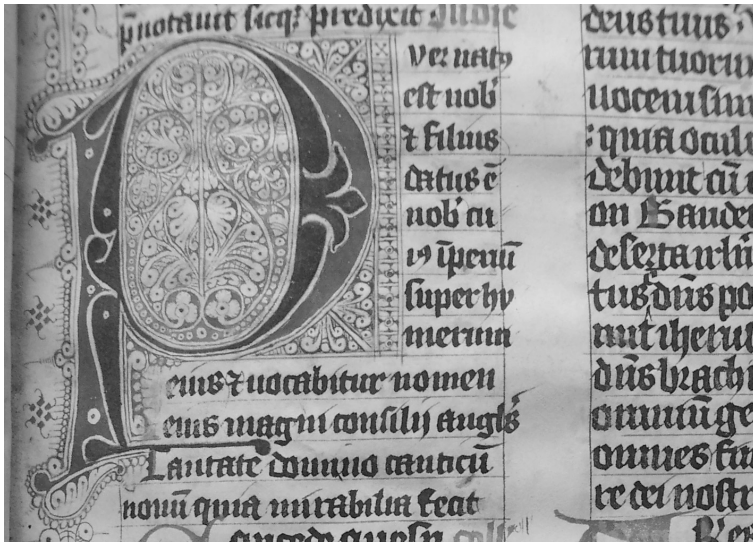 p̄notauit sicqꝫ predixit Judic
P
uer natꝰ
est nob̾
⁊ filius
datus ē
nob̾ cu
iꝰ īperiū
super hu
merum
eius ⁊ uocabitur nomen
eius magni consilij angls̾
Cantate domino canticū
nouū quia mirabilia fecit
deus tuus
rum tuorum
uocem sim
quia oculi
debunt cū
on Gaude
deserta
tus dūs po
aut iherui
dūs brachi
omniū ge
omnes fin
re dei nostri